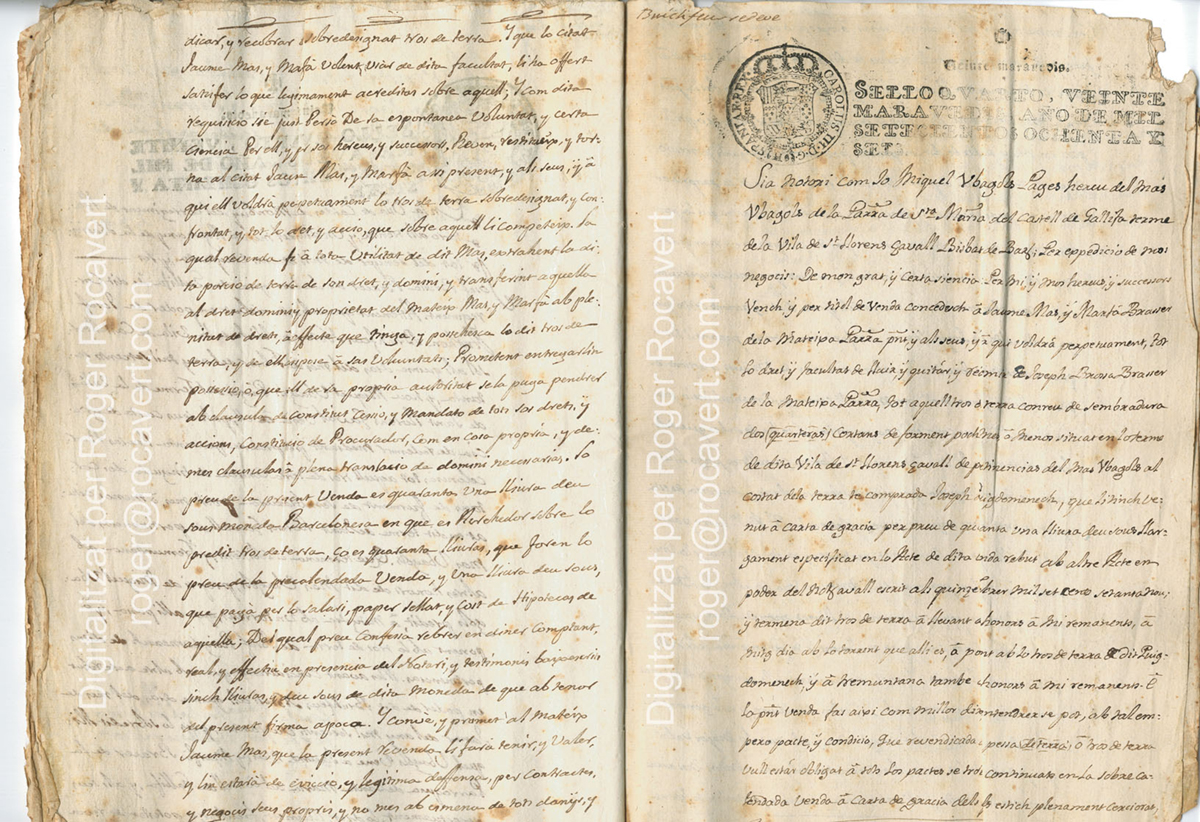 dicar, y recobrar sobredesignat tros de terra. Y que lo citat
Jaume Mas, y Marfá Volent, usar de dita facultat, li ha offert
satisfer lo que legitimament acreditós sobre aquell; Y com dita
requisicio sie just Perso De sa espontanea Voluntat, y certa
Ciencia Per ell, y p. sos hereus, y successors. Reven, restitueix, y tor-
na al citat Jaume Mas, y Marfá assi present, y als seus, y á
qui ell voldrá perpetuament lo tros de terra sobredesignat, y con-
frontat, y tot lo dret, y accio, que sobre aquell li competeix. La
qual revenda fá á tota Utilitat de dit Mas, extrahent la di-
ta porcio de terra de son dret, y domini, y transferint aquella
al dret domini y proprietat del mateix Mas, y Marfá ab ple-
nitat de dret, á effecte que tinga, y possehesca lo dit tros de
terra, y de ell dispose á sas Voluntats; Prometent entregarlin
possessio, ó, que ell de sa propria autoritat se la puga pendrer
ab clausula de constitut Cessio, y Mandato de tots sos drets, y
accions, Constitucio de Procurador, Com en cosa propria, y de-
mes clausulas á plena translacio de domini necessarias. Lo
preu de la present Venda es quaranta Una lliura deu
sous moneda Barcelonesa en que es Acrehedor sobre lo
predit tros de terra, ço es quaranta lliuras, que foren lo
preu de la precalendada Venda, y Una lliura deu sous,
que pagá per lo salari, paper sellat, y Cost de Hipotecas de
aquella; Del qual preu Confessa rebrer en diner Comptant,
real, y effectiu en presencia del Notari, y testimonis baix escrits
sinch lliuras, y deu sous de dita Moneda de que ab tenor
del present firma apoca. Y convé, y promet al mateix
Jaume Mas, que la present revenda li fará tenir, y Valer,
y lin estará de eviccio, y legitima deffensa, per Contractes,
y negocis seus propris, y no mes ab esmena de tots danys, y
Veinte maravedis.
CAROLUS III D.G. HISPANIAR. REX
SELLO QUARTO, VEINTE
MARAVEDIS, AÑO DE MIL
SETECIENTOS OCHENTA Y
SEIS
Sia notori com Jo Miquel Ubagols Pages hereu del Mas
Ubagols de la Parra. de Sta. Maria del Castell de Gallifa terme
de la Vila de St. Llorens Savall Bisbat de Bar.; Per expedicio de mos
negocis: De mon grat, y Certa siencia Per Mi, y mos hereus, y successors
Vench y per titol de Venda concedesch á Jaume Mas, y Marfá Brasser
de la Mateixa Parra. pnt y als seus, y á qui voldrá perpetuament, Tot
lo dret, y facultat de lluir, y quitar, y reemir de Joseph Brossa Brasser
de la Mateixa Parra, tot aquell tros de terra conreu de sembradura
dos (quarteras) Cortans de forment poch mes ó menos situat en lo terme
de dita Vila de St. Llorens Savall de pertinencias del Mas Ubagols al
costat de la terra te comprada Joseph Puigdomenech, que li tinch ve-
nut á Carta de gracia per preu de quranta una lliura deu sous llar-
gament especificat en lo Acte de dita venda rebut ab altre Acte en
poder del Not. avall escrit als quinze mil set cens setanta nou;
y termena dit tros de terra á llevant ab honors á mi remanents, á
mitg dia ab lo torrent que alli es, á ponent ab lo tros de terra de dit Puig-
domenech, y á tremuntana tambe ab honors á mi remanents. É
la pnt venda fas aixi com millor dir y entendrerse pot, ab tal em-
pero pacte, y condicio, que revendicada pessa de terra, ó tros de terra
vull estar obligat á tots los pactes se trob continuats en la sobre Ca-
lendada venda á Carta de gracia dels qs estich plenament cerciorat,
Digitalitzat per Roger Rocavert
roger@rocavert.com
Digitalitzat per Roger Rocavert
roger@rocavert.com